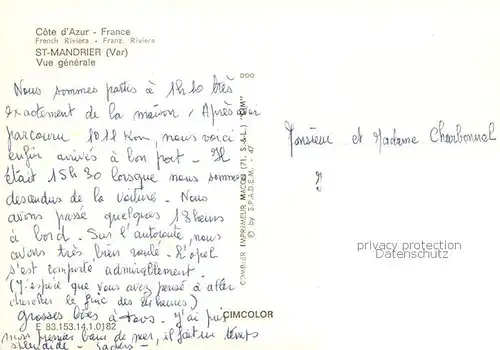 Côte d'Azur - France
French Riviera - Franz. Riviera
ST-MANDRIER (Var)
Vue générale
Nous sommes partis à 1h10 très
exactement de la maison. Après avoir
parcouru 1011 Km, nous voici
enfin arrivés à bon port - Il
était 15h30 lorsque nous sommes
descendus de la voiture. Nous
avons passé quelques 18 heures
à bord. Sur l'autoroute, nous
avons très bien roulé. L'opel
s'est comporté admirablement.
(J'espère que vous avez pensé à aller
chercher le fric des
grosses bises à tous. J'ai pris
mon premier bain de mer, il fait un temps
splendide -
E 83.153.14.1.0182
CIMCOLOR
COMBIER IMPRIMEUR MACON (71. S.-&-L.) "CIM"
© by S.P.A.D.E.M. - 47
Monsieur et Madame Charbonnel
privacy protection
Datenschutz